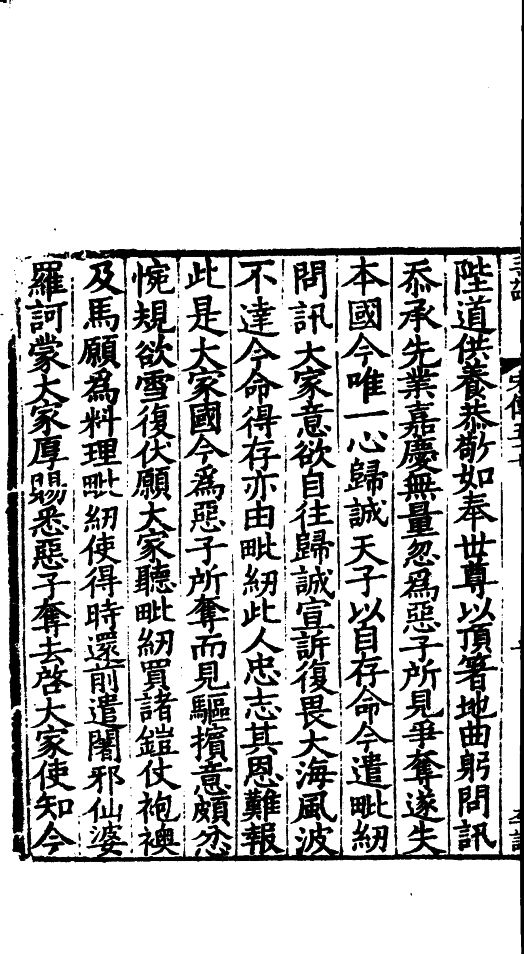 陛道供養恭敬如奉世尊以頂著地曲躬問訊
忝承先業嘉慶無量忽為惡子所見爭奪遂失
本國今唯一心歸誠天子以自存命今遣毗紉
問訊大家意欲自往歸誠宣訴復畏大海風波
不達今命得存亦由毗紉此人忠志其恩難報
此是大家國今為惡子所奪而見驅擯意頗忿
惋規欲雪復伏願大家聽毗紉買諸鎧仗袍襖
及馬願為料理毗紉使得時還前遣闍邪仙婆
羅訶蒙大家厚賜悉惡子奪去啓大家使知今